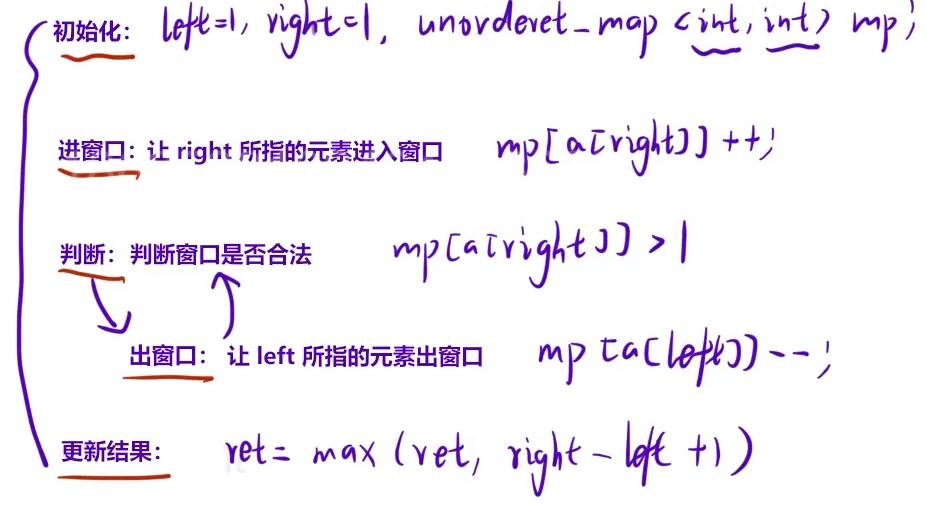 初始化： left=1, right=1, unorderet_map <int, int> mp;
进窗口：让 right 所指的元素进入窗口 mp[a[right]]++;
判断：判断窗口是否合法 mp[a[right]] > 1
出窗口： 让 left 所指的元素出窗口 mp[a[left]]--;
更新结果： ret = max (ret, right - left + 1)